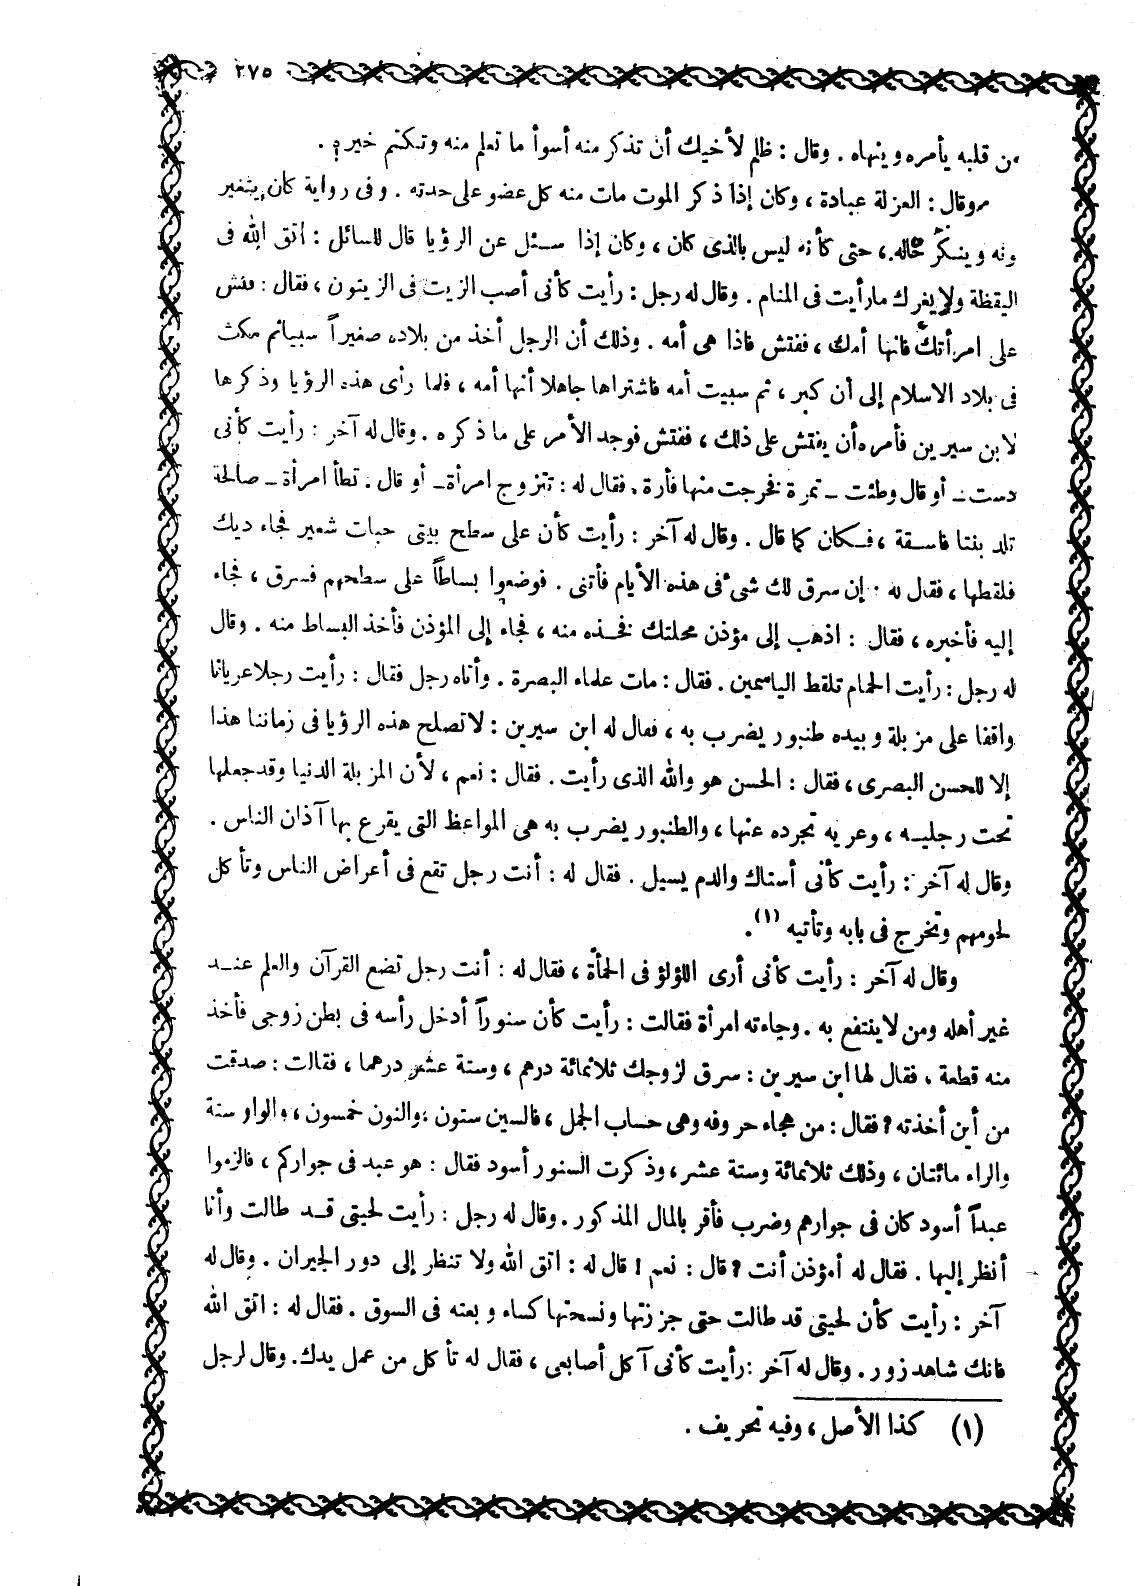 ٢٧٥
من قلبه يأمره وينهاه . وقال : ظلم لأخيك أن تذكر منه أسوأ ما تعلم منه وتكتم خيره .
وقال : العزلة عبادة ، وكان إذا ذكر الموت مات منه كل عضو على حدته . وفى رواية كان يتغير
ونه وينكر حاله ، حتى كأنه ليس بالذى كان ، وكان إذا سئل عن الرؤيا قال للسائل : اتق الله فى
اليقظة ولا يغرك مارأيت فى المنام . وقال له رجل : رأيت كأنى أصب الزيت فى الزيتون ، فقال : فتش
على امرأتك فانها أمك ، ففتش فاذا هى أمه . وذلك أن الرجل أخذ من بلاده صغيراً سبيا ثم مكث
فى بلاد الاسلام إلى أن كبر ، ثم سبيت أمه فاشتراها جاهلا أنها أمه ، فلما رأى هذه الرؤيا وذكرها
لابن سيرين فأمره أن يفتش على ذلك ، ففتش فوجد الأمر على ما ذكره . وقال له آخر : رأيت كأنى
دست ـ أو قال وطئت ـ تمرة فخرجت منها فأرة . فقال له : تتزوج امرأة ـ أو قال . تطأ امرأة ـ صالحة
تلد بنتا فاسقة ، فكان كما قال . وقال له آخر : رأيت كأن على سطح بيتى حبات شعير فجاء ديك
فلقطها ، فقال له : إن سرق لك شىء فى هذه الأيام فأتنى . فوضعوا بساطاً على سطحهم فسرق ، فجاء
إليه فأخبره ، فقال : اذهب إلى مؤذن محلتك فخذه منه ، فجاء إلى المؤذن فأخذ البساط منه . وقال
له رجل : رأيت الحمام تلقط الياسمين . فقال : مات علماء البصرة . وأتاه رجل فقال : رأيت رجلا عريانا
واقفا على مزبلة وبيده طنبور يضرب به ، فقال له ابن سيرين : لا تصلح هذه الرؤيا فى زماننا هذا
إلا للحسن البصرى ، فقال : الحسن هو والله الذى رأيت . فقال : نعم ، لأن المزبلة الدنيا وقد جعلها
تحت رجليه ، وعريه تجرده عنها ، والطنبور يضرب به هى المواعظ التى يقرع بها آذان الناس .
وقال له آخر : رأيت كأنى أستاك والدم يسيل . فقال له : أنت رجل تقع فى أعراض الناس وتأكل
لحومهم وتخرج فى بابه وتأتيه (١) .
وقال له آخر : رأيت كأنى أرى اللؤلؤ فى الحمأة ، فقال له : أنت رجل تضع القرآن والعلم عند
غير أهله ومن لا ينتفع به . وجاءته امرأة فقالت : رأيت كأن سنوراً أدخل رأسه فى بطن زوجى فأخذ
منه قطعة . فقال لها ابن سيرين : سرق لزوجك ثلاثمائة درهم ، وستة عشر درهما ، فقالت : صدقت
من أين أخذته ؟ فقال : من هجاء حروفه وهى حساب الجمل ، فالسين ستون ، والنون خمسون ، والواو ستة
والراء مائتان ، وذلك ثلاثمائة وستة عشر ، وذكرت السنور أسود فقال : هو عبد فى جواركم ، فالزموا
عبداً أسود كان فى جوارهم وضرب فأقر بالمال المذكور . وقال له رجل : رأيت لحيتى قد طالت وأنا
أنظر إليها . فقال له أمؤذن أنت ؟ قال : نعم ! قال له : اتق الله ولا تنظر إلى دور الجيران . وقال له
آخر : رأيت كأن لحيتى قد طالت حتى جززتها ونسجتها كساء وبعته فى السوق . فقال له : اتق الله
فانك شاهد زور . وقال له آخر : رأيت كأنى آكل أصابعى ، فقال له تأكل من عمل يدك . وقال لرجل
(١) كذا الأصل ، وفيه تحريف .